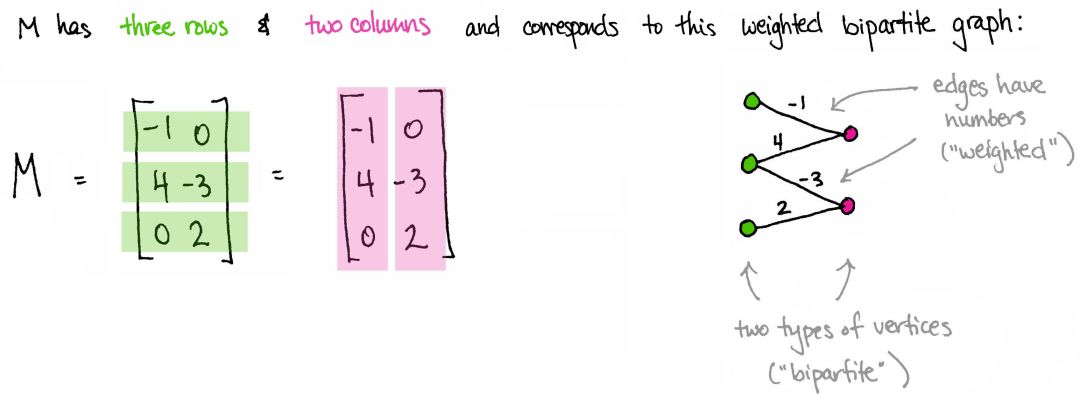 M has three rows & two columns and corresponds to this weighted bipartite graph:
M = [-1 0 = [-1 0
4 -3 4 -3
0 2] 0 2]
-1
4
-3
2
edges have
numbers
("weighted")
two types of vertices
("bipartite")